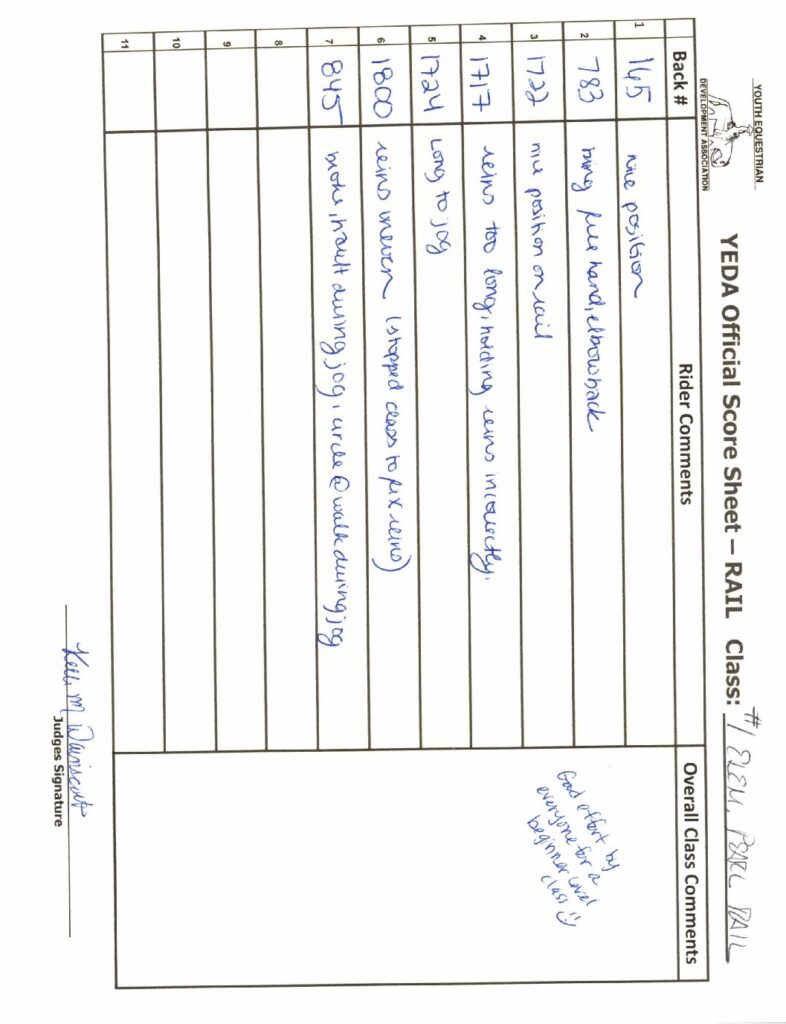 YOUTH EQUESTRIAN
DEVELOPMENT ASSOCIATION
YEDA Official Score Sheet – RAIL Class: #1 ELEM. PEARL RAIL
Back # Rider Comments Overall Class Comments
1 145 nice position
2 783 bring free hand, elbow back
3 1722 nice position on rail
4 1717 reins too long, holding reins incorrectly.
5 1724 long to jog
6 1800 reins uneven (stopped class to fix reins)
7 845 broke, hault during jog, circle @ walk during jog
8
9
10
11
Good effort by
everyone for a
beginner level
class :)
M Wainscott
Judges Signature